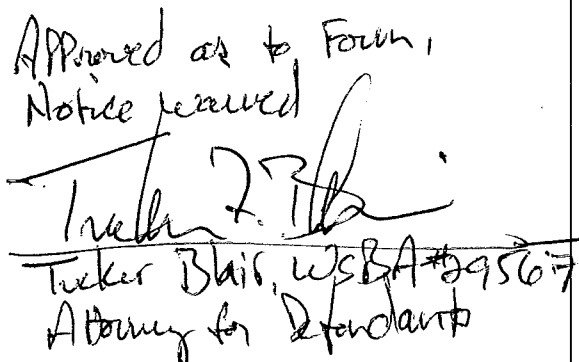 Approved as to Form,
Notice waived
Tucker F. Blair
Tucker Blair, WSBA #29567
Attorney for Defendants